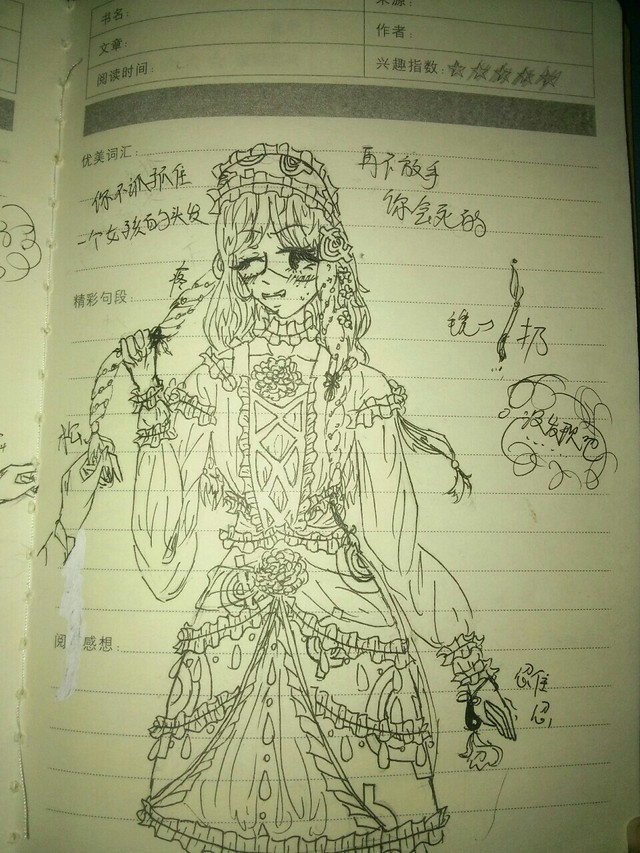 书名:
来源:
文章:
作者:
阅读时间:
兴趣指数:
优美词汇:
你不抓抓住
一个女孩的头发
再不放手
你会死的
疼
精彩句段:
扔
松
没发飘吧
阅 感想:
忍住
忍